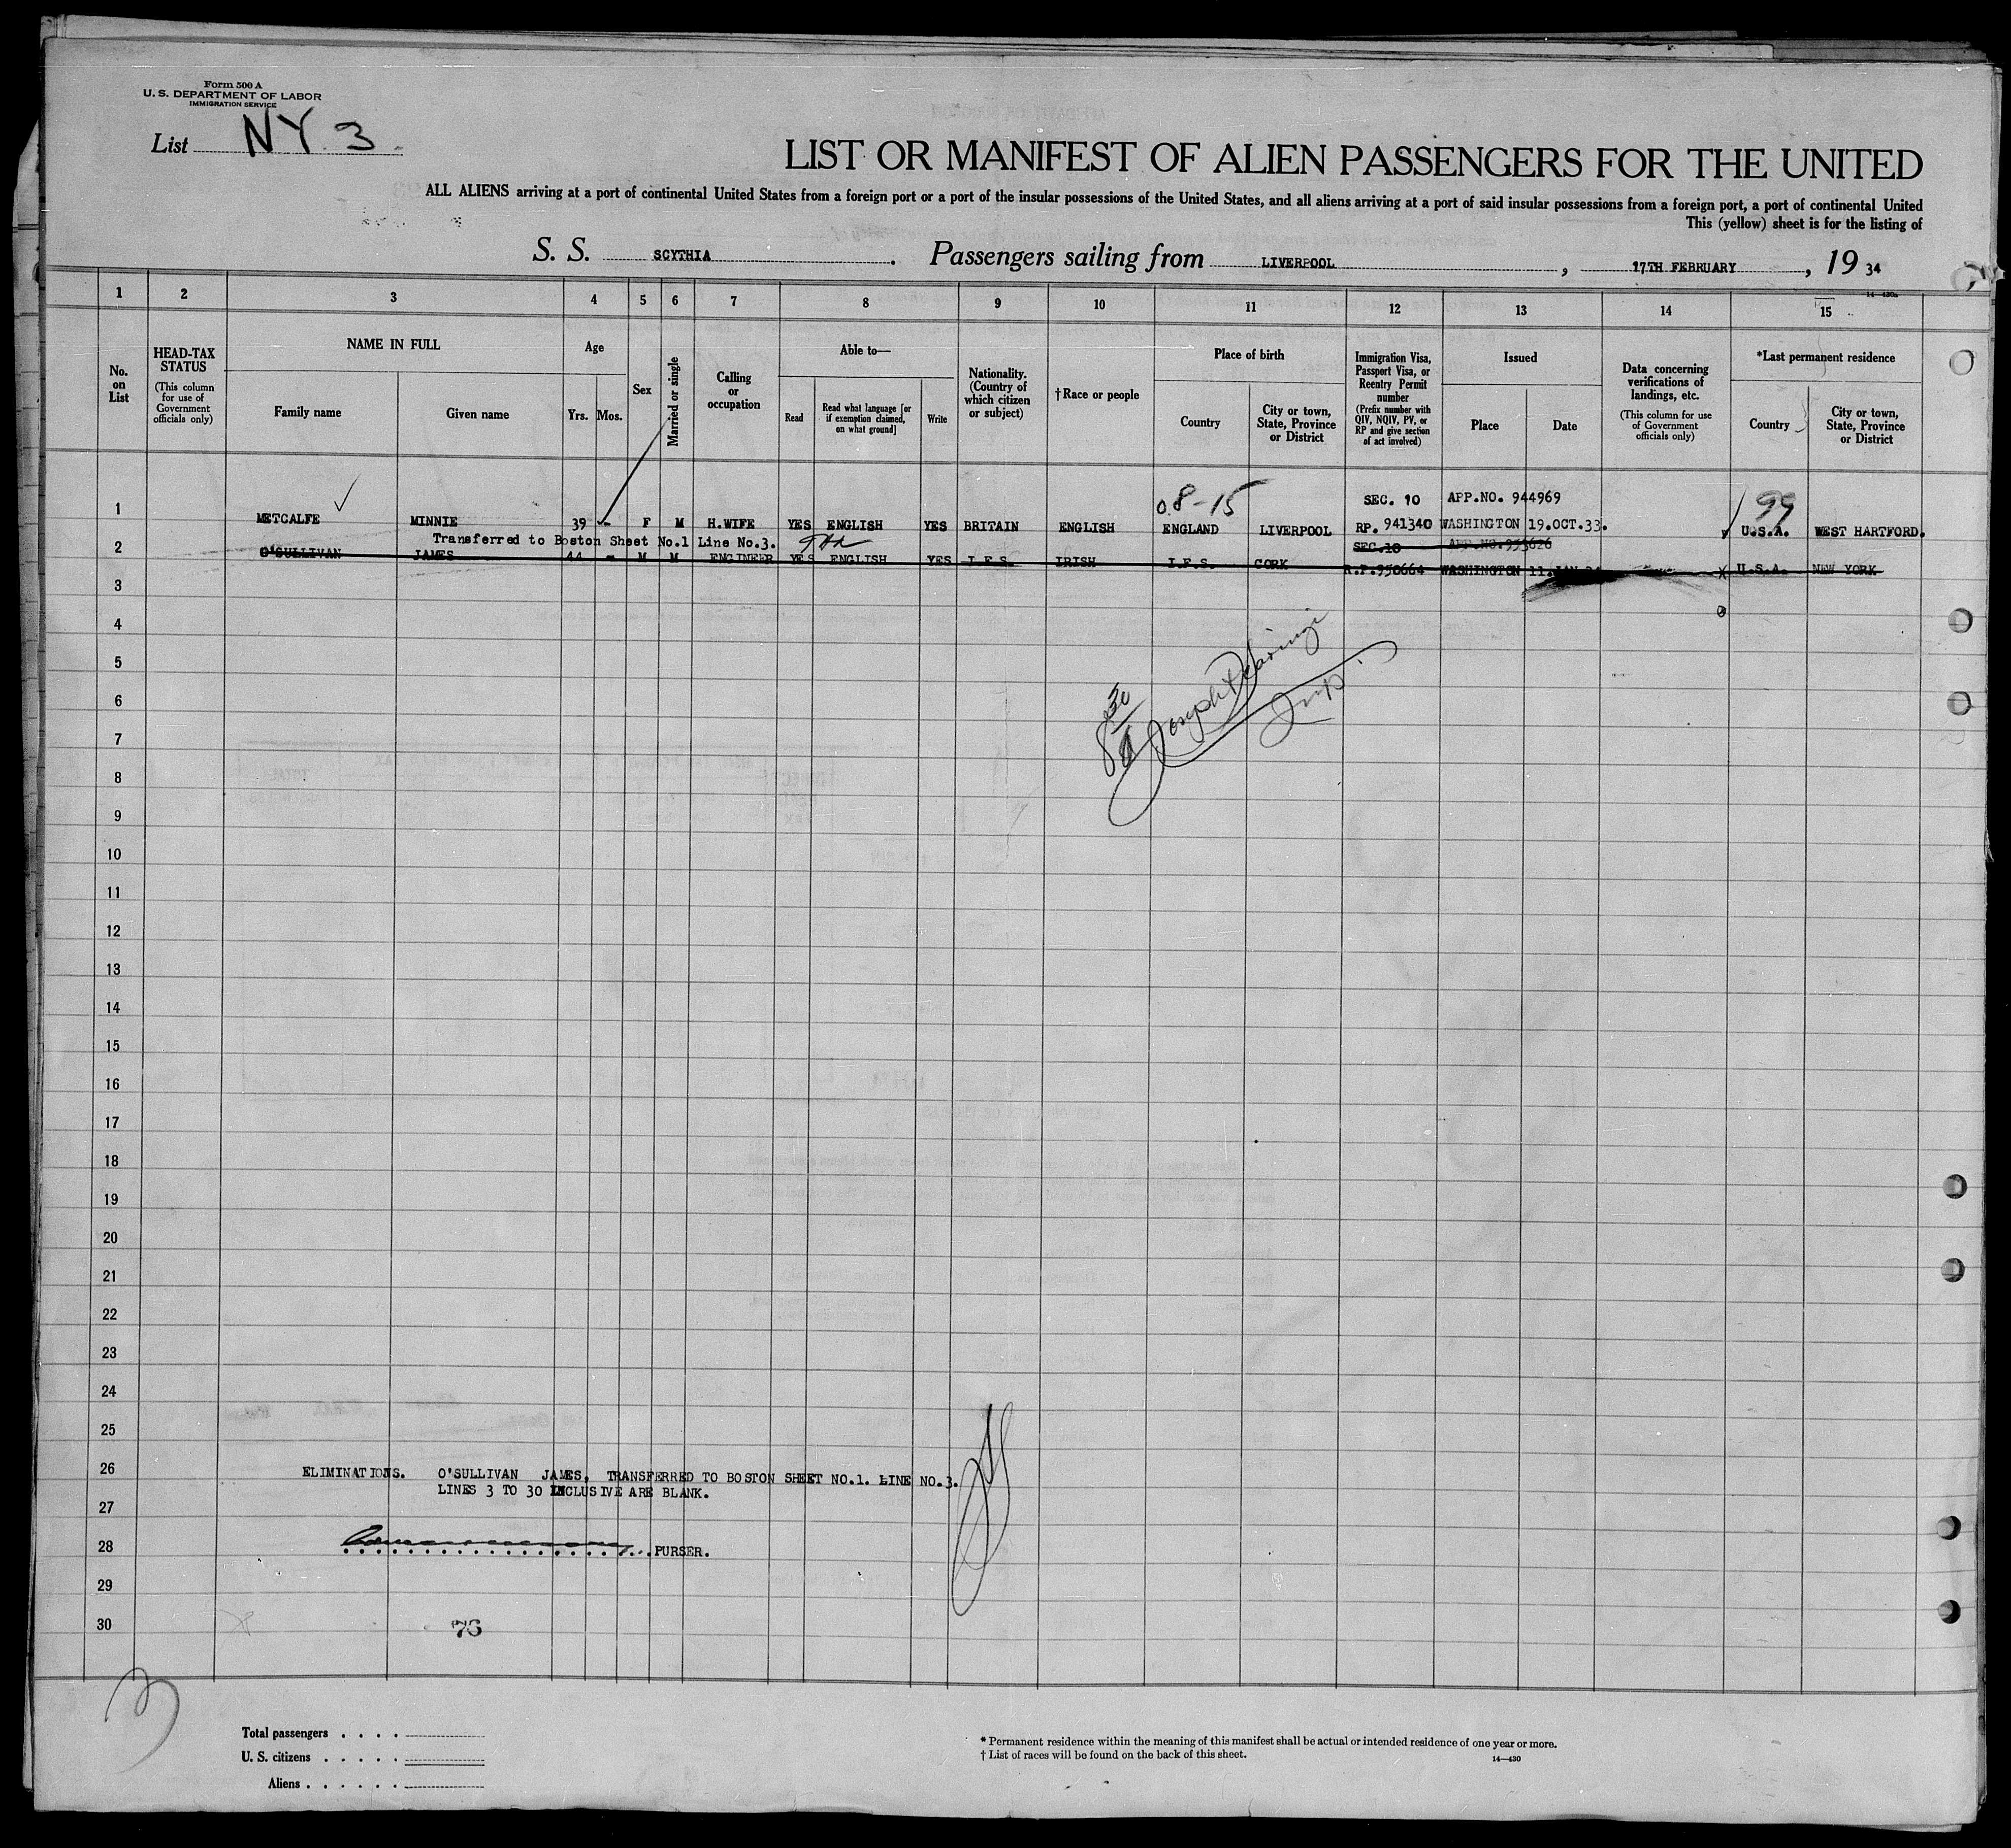 Form 500 A
U. S. DEPARTMENT OF LABOR
IMMIGRATION SERVICE
List NY. 3.
LIST OR MANIFEST OF ALIEN PASSENGERS FOR THE UNITED
ALL ALIENS arriving at a port of continental United States from a foreign port or a port of the insular possessions of the United States, and all aliens arriving at a port of said insular possessions from a foreign port, a port of continental United
This (yellow) sheet is for the listing of
S. S. SCYTHIA. Passengers sailing from LIVERPOOL, 17TH FEBRUARY, 19 34
14—430a
1 2 3 4 5 6 7 8 9 10 11 12 13 14 15
No. on List
HEAD-TAX STATUS
(This column for use of Government officials only)
NAME IN FULL
Family name Given name
Age
Yrs. Mos.
Sex
Married or single
Calling or occupation
Able to—
Read
Read what language [or if exemption claimed, on what ground]
Write
Nationality. (Country of which citizen or subject)
†Race or people
Place of birth
Country
City or town, State, Province or District
Immigration Visa, Passport Visa, or Reentry Permit number
(Prefix number with QIV, NQIV, PV, or RP and give section of act involved)
Issued
Place Date
Data concerning verifications of landings, etc.
(This column for use of Government officials only)
*Last permanent residence
Country
City or town, State, Province or District
08-15 SEC. 10 APP.NO. 944969 99
1 METCALFE MINNIE 39 - F M H.WIFE YES ENGLISH YES BRITAIN ENGLISH ENGLAND LIVERPOOL RP. 941340 WASHINGTON 19.OCT.33. U.S.A. WEST HARTFORD.
Transferred to Boston Sheet No.1 Line No.3.
SEC.10 APP.NO.953626
2 O'SULLIVAN JAMES 44 - M M ENGINEER YES ENGLISH YES I.F.S. IRISH I.F.S. CORK R.P.950664 WASHINGTON 11.JAN.34 U.S.A. NEW YORK
3
4
5
6
7
8
9
10
11
12
13
14
15
16
17
18
19
20
21
22
23
24
25
26 ELIMINATIONS. O'SULLIVAN JAMES, TRANSFERRED TO BOSTON SHEET NO.1. LINE NO.3.
LINES 3 TO 30 INCLUSIVE ARE BLANK.
27
28 PURSER.
29
30 76
Total passengers
U. S. citizens
Aliens
* Permanent residence within the meaning of this manifest shall be actual or intended residence of one year or more.
† List of races will be found on the back of this sheet.
14—430